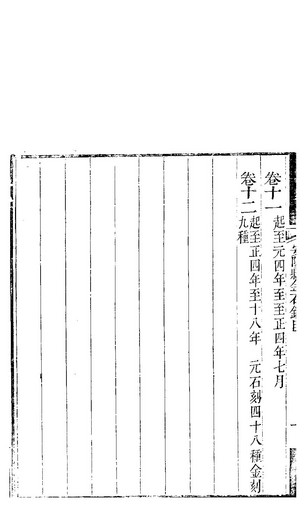 卷十一 起至元四年至至正四年七月
卷十二 起至正四年至十八年 元石刻四十八種金刻
九種